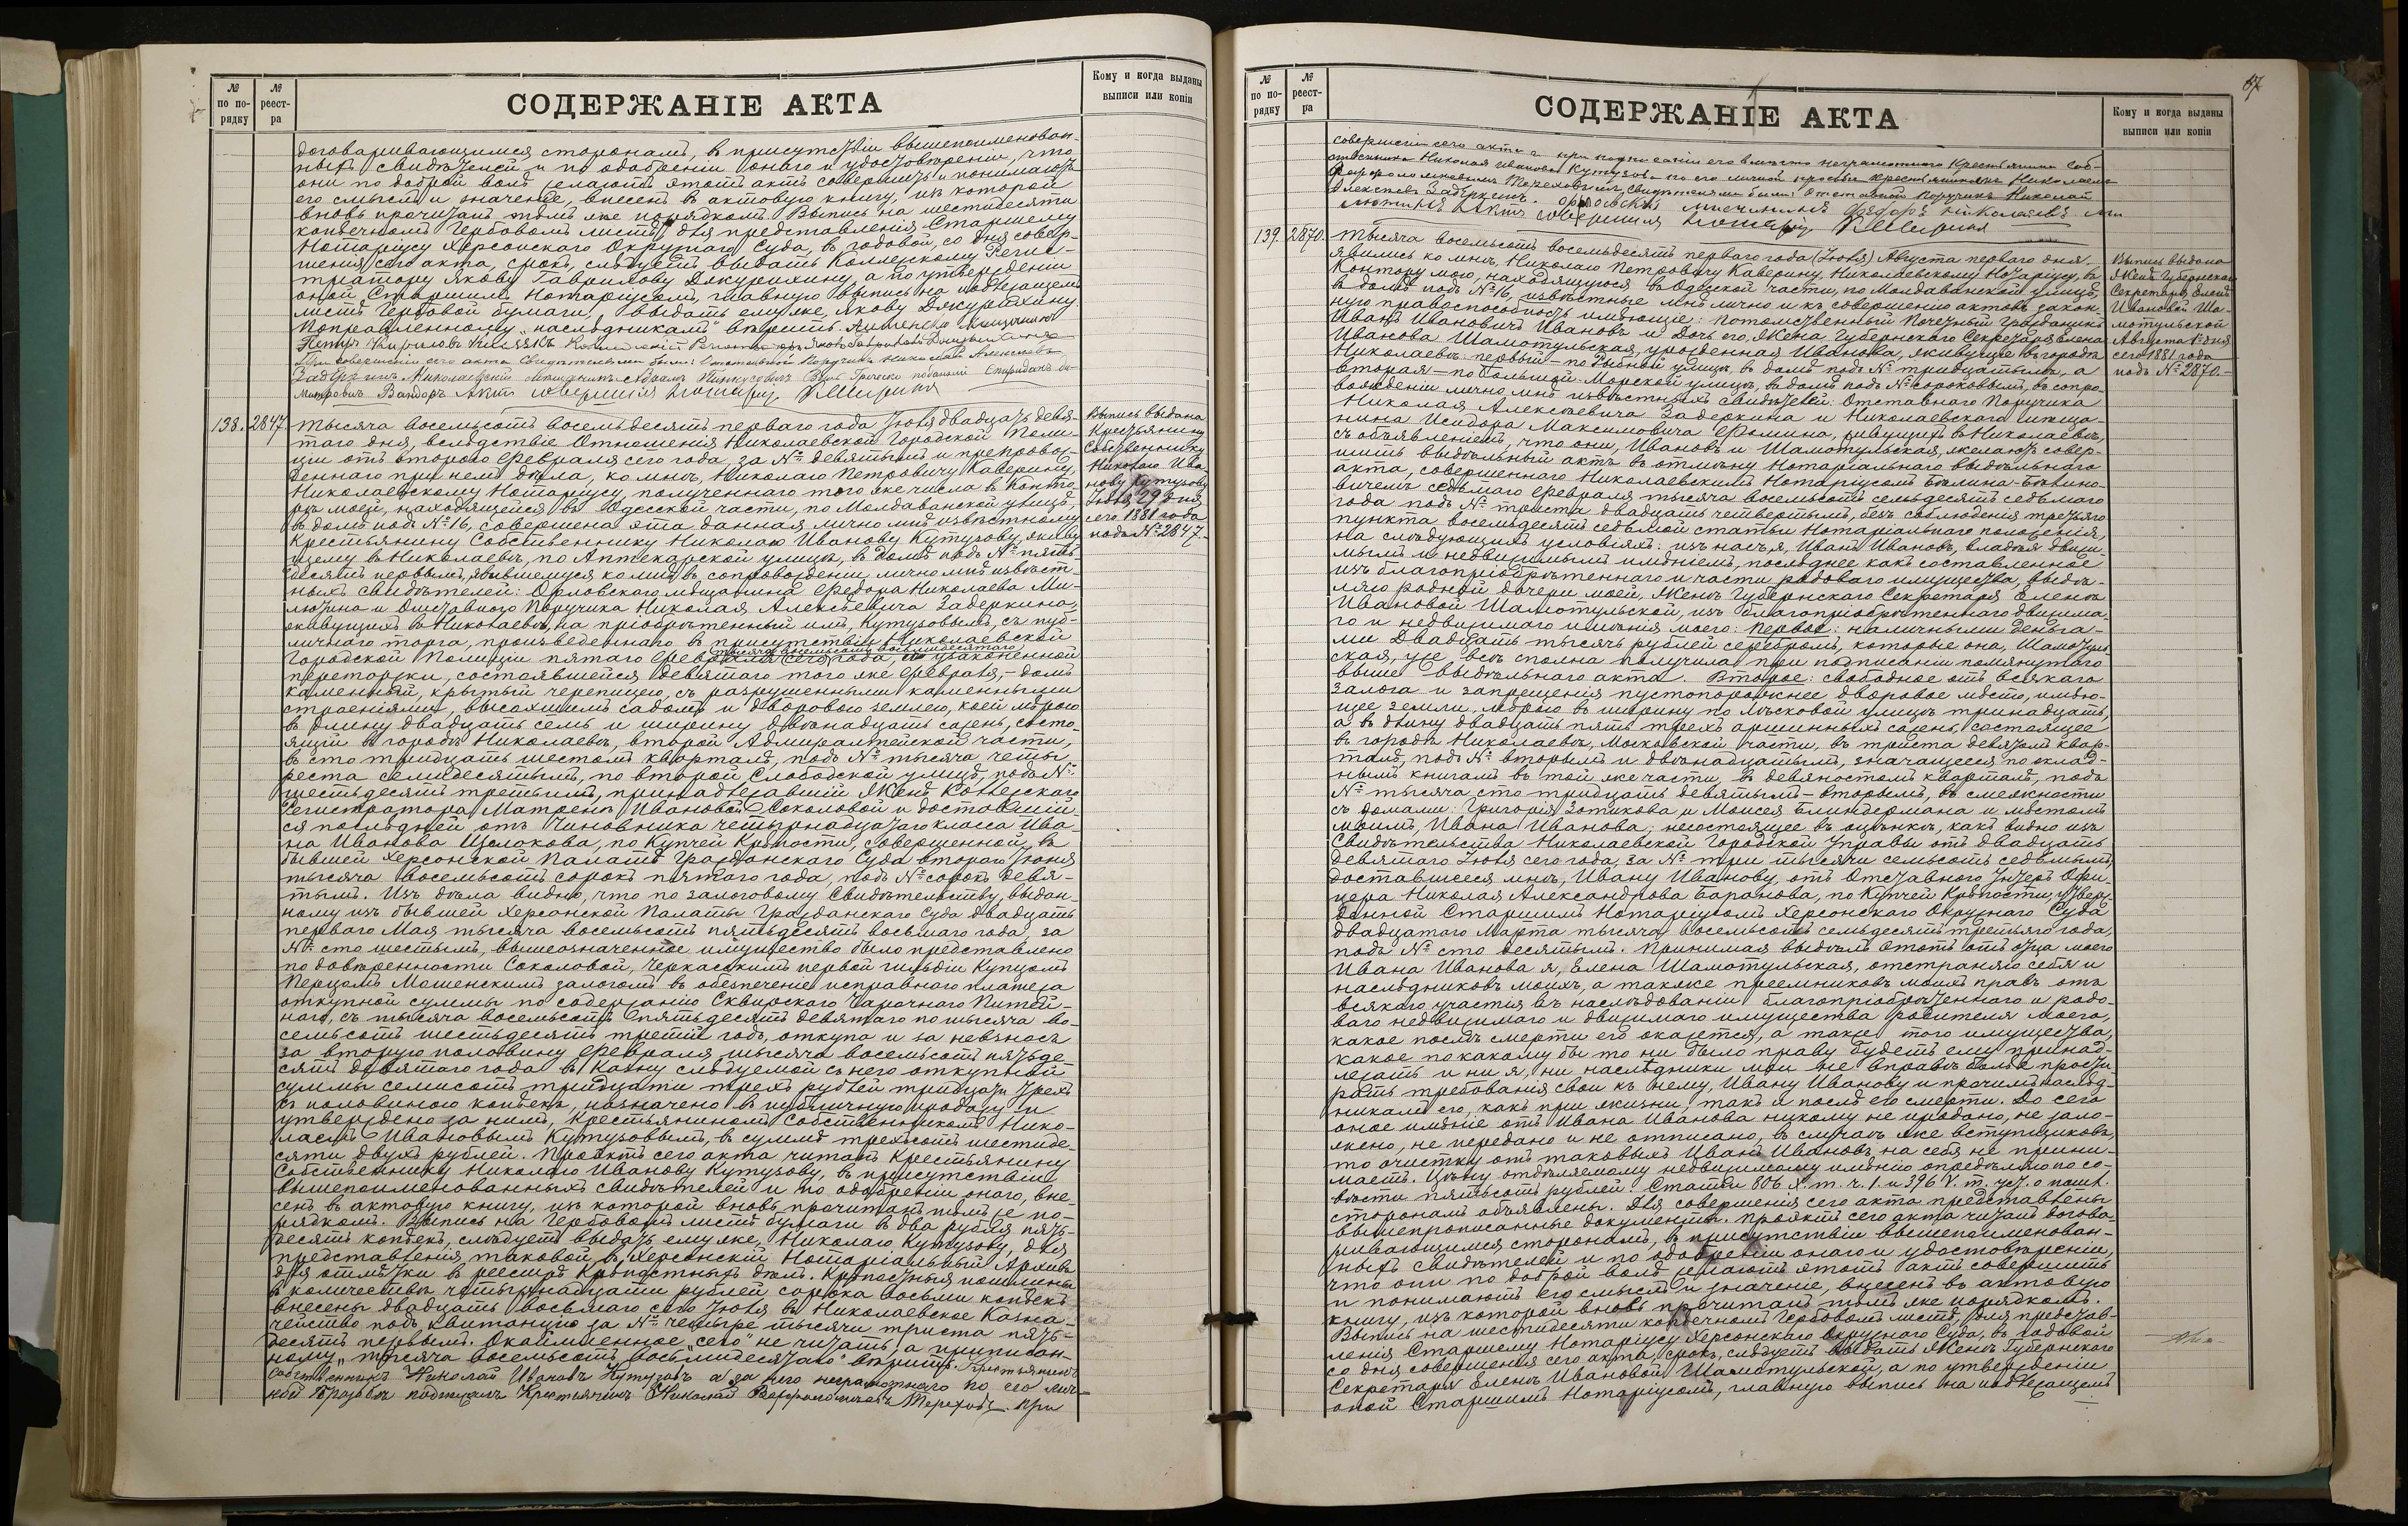 № по по-рядку
№ реест-ра
СОДЕРЖАНІЕ АКТА
Кому и когда выданы выписи или копіи
договаривающимся сторонамъ, въ присутствіи вышепоименован-
ныхъ свидѣтелей и по одобреніи онаго и удостовѣреніи, что
они по доброй волѣ желаютъ этотъ актъ совершить и понимаютъ
его смыслъ и значеніе, внесенъ въ актовую книгу, изъ которой
вновь прочитанъ тѣмъ же порядкомъ. Выпись на шестидесяти
копѣечномъ Гербовомъ листѣ, для представленія Старшему
Нотаріусу Херсонскаго Окружнаго Суда, въ годовой, со дня совер-
шенія сего акта, срокъ, слѣдуетъ выдать Коллежскому Регис-
тратору Якову Гаврилову Дякурахину, а по утвержденіи
оной Старшимъ Нотаріусомъ, главную выпись на подлежащемъ
листѣ Гербовой бумаги, выдать ему же, Якову Дякурахину.
Поправленному „наслѣдникамъ" вѣрить.
Петръ Кириловъ
При совершеніи сего акта Свидѣтелями были: Отставной Поручикъ Николай Алексѣевъ
Задеркинъ Николаевскій мѣщанинъ
Актъ совершилъ Нотаріусъ
138. 2847.
Тысяча восемьсотъ восемьдесятъ перваго года Іюля двадцать девя-
таго дня, вслѣдствіе Отношенія Николаевской Городской Поли-
ціи отъ втораго Февраля сего года за № девятымъ и препровож-
деннаго при немъ дѣла, ко мнѣ, Николаю Петровичу Каверину,
Николаевскому Нотаріусу, полученнаго того же числа въ Конто-
рѣ моей, находящейся въ Одесской части, по Молдаванской улицѣ,
въ домѣ подъ № 16, совершена эта данная лично мнѣ извѣстному
Крестьянину Собственнику Николаю Иванову Кутузову, живу-
щему въ Николаевѣ, по Аптекарской улицѣ, въ домѣ подъ № пять-
десятъ первымъ, явившемуся ко мнѣ въ сопровожденіи лично мнѣ извѣст-
ныхъ свидѣтелей: Орловскаго мѣщанина Федора Николаева Ми-
лютина и Отставного Поручика Николая Алексѣевича Задеркина,
живущихъ въ Николаевѣ, на пріобрѣтенный имъ, Кутузовымъ, съ пуб-
личнаго торга, произведеннаго въ присутствіи Николаевской
тысяча восемьсотъ восьмидесятаго
Городской Полиціи пятаго Февраля сего года, съ узаконенной
переторжки, состоявшейся девятаго того же Февраля, - домъ
каменный, крытый черепицею, съ разрушенными каменными
строеніями, высохшимъ садомъ и дворовою землею, коей мѣрою
въ длину двадцать семь и ширину двѣнадцать сажень, состо-
ящій въ городѣ Николаевѣ, второй Адмиралтейской части,
въ сто тридцать шестомъ кварталѣ, подъ № тысяча четы-
реста семидесятымъ, по второй Слободской улицѣ, подъ №
шестьдесятъ третьимъ, принадлежавшій Женѣ Коллежскаго
Регистратора Матренѣ Ивановой Соколовой и доставшій-
ся послѣдней отъ Чиновника четырнадцатаго класса Ива-
на Иванова Щелокова, по Купчей Крѣпости, совершенной въ
бывшей Херсонской Палатѣ Гражданскаго Суда втораго Іюня
тысяча восемьсотъ сорокъ пятаго года, подъ № сорокъ девя-
тымъ. Изъ дѣла видно, что по залоговому Свидѣтельству, выдан-
ному изъ бывшей Херсонской Палаты Гражданскаго Суда двадцать
перваго Мая тысяча восемьсотъ пятьдесятъ восьмаго года, за
№ сто шестымъ, вышеозначенное имущество было представлено
по довѣренности Соколовой, Черкасскимъ первой гильдіи Купцомъ
Перцомъ Мошенскимъ залогомъ въ обезпеченіе исправнаго платежа
откупной суммы по содержанію Сквирскаго Чарочнаго Питей-
наго, съ тысяча восемьсотъ пятьдесятъ девятаго по тысяча во-
семьсотъ шестьдесятъ третій годъ, откупа и за невзносъ
за вторую половину Февраля тысяча восемьсотъ пятьде-
сятъ девятаго года въ Казну слѣдуемой съ него откупной
суммы семисотъ тридцати трехъ рублей тридцать трехъ
съ половиною копѣекъ, назначено въ публичную продажу и
утверждено за нимъ, Крестьяниномъ Собственникомъ Нико-
лаемъ Ивановымъ Кутузовымъ, въ суммѣ трехсотъ шестиде-
сяти двухъ рублей. Проэктъ сего акта читанъ Крестьянину
Собственнику Николаю Иванову Кутузову, въ присутствіи
вышепоименованныхъ свидѣтелей и по одобреніи онаго, вне-
сенъ въ актовую книгу, изъ которой вновь прочитанъ тѣмъ же по-
рядкомъ. Выпись на Гербовомъ листѣ бумаги въ два рубля пять-
десятъ копѣекъ, слѣдуетъ выдать ему же, Николаю Кутузову, для
представленія таковой въ Херсонскій Нотаріальный Архивъ
для отмѣтки въ реестрѣ Крѣпостныхъ дѣлъ. Крѣпостныя пошлины
въ количествѣ четырнадцати рублей сорока восьми копѣекъ
внесены двадцать восьмаго сего Іюля въ Николаевское Казна-
чейство подъ Квитанцію за № четыре тысячи триста пять-
десятъ первымъ. Окаймленное „сего" не читать, а приписан-
ному „тысяча восемьсотъ восьмидесятаго" вѣрить. Крестьянинъ
Собственникъ Николай Ивановъ Кутузовъ а за него неграмотнаго по его лич-
ной просьбѣ подписался Крестьянинъ Николай Варфоломеевъ Тереховъ. При
Выпись выдана
Крестьянину
Собственнику
Николаю Ива-
нову Кутузову
Іюля 29 дня
сего 1881 года
подъ № 2847.
67
№ по по-рядку
№ реест-ра
СОДЕРЖАНІЕ АКТА
Кому и когда выданы выписи или копіи
совершеніи сего акта и при подписаніи его вмѣсто неграмотнаго Крестьянина Соб-
ственника Николая Иванова Кутузова по его личной просьбѣ Крестьяниномъ Николаемъ
Варфоломеевымъ Тереховымъ, свидѣтелями были: Отставной Поручикъ Николай
Алексѣевъ Задеркинъ. Орловскій мѣщанинъ Федоръ Николаевъ Ми-
лютинъ Актъ совершилъ Нотаріусъ
139. 2870.
Тысяча восемьсотъ восемьдесятъ перваго года (Іюля) Августа перваго дня,
явились ко мнѣ, Николаю Петровичу Каверину, Николаевскому Нотаріусу, въ
Контору мою, находящуюся въ Одесской части, по Молдаванской улицѣ,
въ домѣ подъ № 16, извѣстные мнѣ лично и къ совершенію актовъ закон-
ную правоспособность имѣющіе: Потомственный Почетный Гражданинъ
Иванъ Ивановичъ Ивановъ и Дочь его, Жена Губернскаго Секретаря Елена
Иванова Шамотульская, урожденная Иванова, живущіе въ городѣ
Николаевѣ: первый - по Рыбной улицѣ, въ домѣ подъ № тридцатымъ, а
вторая - по Большой Морской улицѣ, въ домѣ подъ № сороковымъ, въ сопро-
вожденіи лично мнѣ извѣстныхъ свидѣтелей: Отставнаго Поручика
Николая Алексѣевича Задеркина и Николаевскаго мѣща-
нина Исидора Максимовича Фомина, живущихъ въ Николаевѣ,
съ объявленіемъ, что они, Ивановъ и Шамотульская, желаютъ совер-
шить выдѣльный актъ въ отмѣну Нотаріальнаго выдѣльнаго
акта, совершеннаго Николаевскимъ Нотаріусомъ
вичемъ седьмаго Февраля тысяча восемьсотъ семьдесятъ седьмаго
года подъ № триста двадцать четвертымъ, безъ соблюденія третьяго
пункта восемьдесятъ седьмой статьи Нотаріальнаго положенія,
на слѣдующихъ условіяхъ: изъ насъ я, Иванъ Ивановъ, владѣя движи-
мымъ и недвижимымъ имѣніемъ, послѣднее какъ составленное
изъ благопріобрѣтеннаго и части родоваго имущества, выдѣ-
ляю родной дочери моей, Женѣ Губернскаго Секретаря Еленѣ
Ивановой Шамотульской, изъ благопріобрѣтеннаго движима-
го и недвижимаго имѣнія моего: Первое: наличными деньга-
ми двадцать тысячъ рублей серебромъ, которые она, Шамотуль-
ская, уже всѣ сполна получила при подписаніи помянутаго
выше выдѣльнаго акта. Второе: свободное отъ всякаго
залога и запрещенія пустопорожнее дворовое мѣсто, имѣю-
щее земли, мѣрою въ ширину по Лѣсковой улицѣ тринадцать,
а въ длину двадцать пять трехъ аршинныхъ сажень, состоящее
въ городѣ Николаевѣ, Московской части, въ триста девятомъ квар-
талѣ, подъ № вторымъ и двѣнадцатымъ, значащееся по оклад-
нымъ книгамъ въ той же части, въ девяностомъ кварталѣ, подъ
№ тысяча сто тридцать девятымъ - вторымъ, въ смежности
съ домами: Григорія Зотикова и Моисея Блиндермана и мѣстомъ
моимъ, Ивана Иванова; несостоящее въ оцѣнкѣ, какъ видно изъ
Свидѣтельства Николаевской Городской Управы отъ двадцать
девятаго Іюля сего года, за № три тысячи семьсотъ седьмымъ,
доставшееся мнѣ, Ивану Иванову, отъ Отставнаго Унтеръ Офи-
цера Николая Александрова Баранова, по Купчей Крѣпости, утверж-
денной Старшимъ Нотаріусомъ Херсонскаго Окружнаго Суда
двадцатаго Марта тысяча восемьсотъ семьдесятъ третьяго года,
подъ № сто десятымъ. Принимая выдѣлъ этотъ отъ отца моего
Ивана Иванова я, Елена Шамотульская, отстраняю себя и
наслѣдниковъ моихъ, а также преемниковъ моихъ правъ отъ
всякаго участія въ наслѣдованіи благопріобрѣтеннаго и родо-
ваго недвижимаго и движимаго имущества родителя моего,
какое послѣ смерти его окажется, а также того имущества,
какое по какому бы то ни было праву будетъ ему принад-
лежать и ни я, ни наслѣдники мои не вправѣ болѣе прости-
рать требованія свои къ нему, Ивану Иванову и прочимъ наслѣд-
никамъ его, какъ при жизни, такъ и послѣ его смерти. До сего
оное имѣніе отъ Ивана Иванова никому не продано, не зало-
жено, не передано и не отписано, въ случаѣ же вступщиковъ,
то очистку отъ таковыхъ Иванъ Ивановъ на себя не прини-
маетъ. Цѣну отдѣляемому недвижимому имѣнію опредѣляю по со-
вѣсти пятьсотъ рублей. Статьи 806 X. т. ч. 1. и 396 V. т. уст. о пошл.
сторонамъ объявлены. Для совершенія сего акта представлены
вышепрописанные документы. Проэктъ сего акта читанъ догова-
ривающимся сторонамъ, въ присутствіи вышепоименован-
ныхъ свидѣтелей и по одобреніи онаго и удостовѣреніи,
что они по доброй волѣ желаютъ этотъ актъ совершить
и понимаютъ его смыслъ и значеніе, внесенъ въ актовую
книгу, изъ которой вновь прочитанъ тѣмъ же порядкомъ.
Выпись на шестидесяти копѣечномъ Гербовомъ листѣ, для представ-
ленія Старшему Нотаріусу Херсонскаго Окружнаго Суда, въ годовой
со дня совершенія сего акта, срокъ, слѣдуетъ выдать Женѣ Губернскаго
Секретаря Еленѣ Ивановой Шамотульской, а по утвержденіи
оной Старшимъ Нотаріусомъ, главную выпись на подлежащемъ
Выпись выдана
Женѣ Губернскаго
Секретаря Еленѣ
Ивановой Ша-
мотульской
Августа 1 дня
сего 1881 года
подъ № 2870.